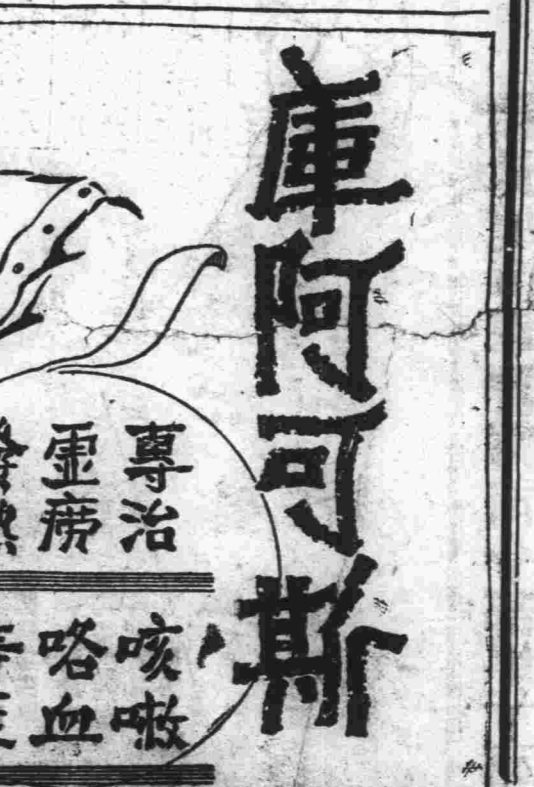 庫阿可斯
專治
虛癆
發熱
咳嗽
咯血